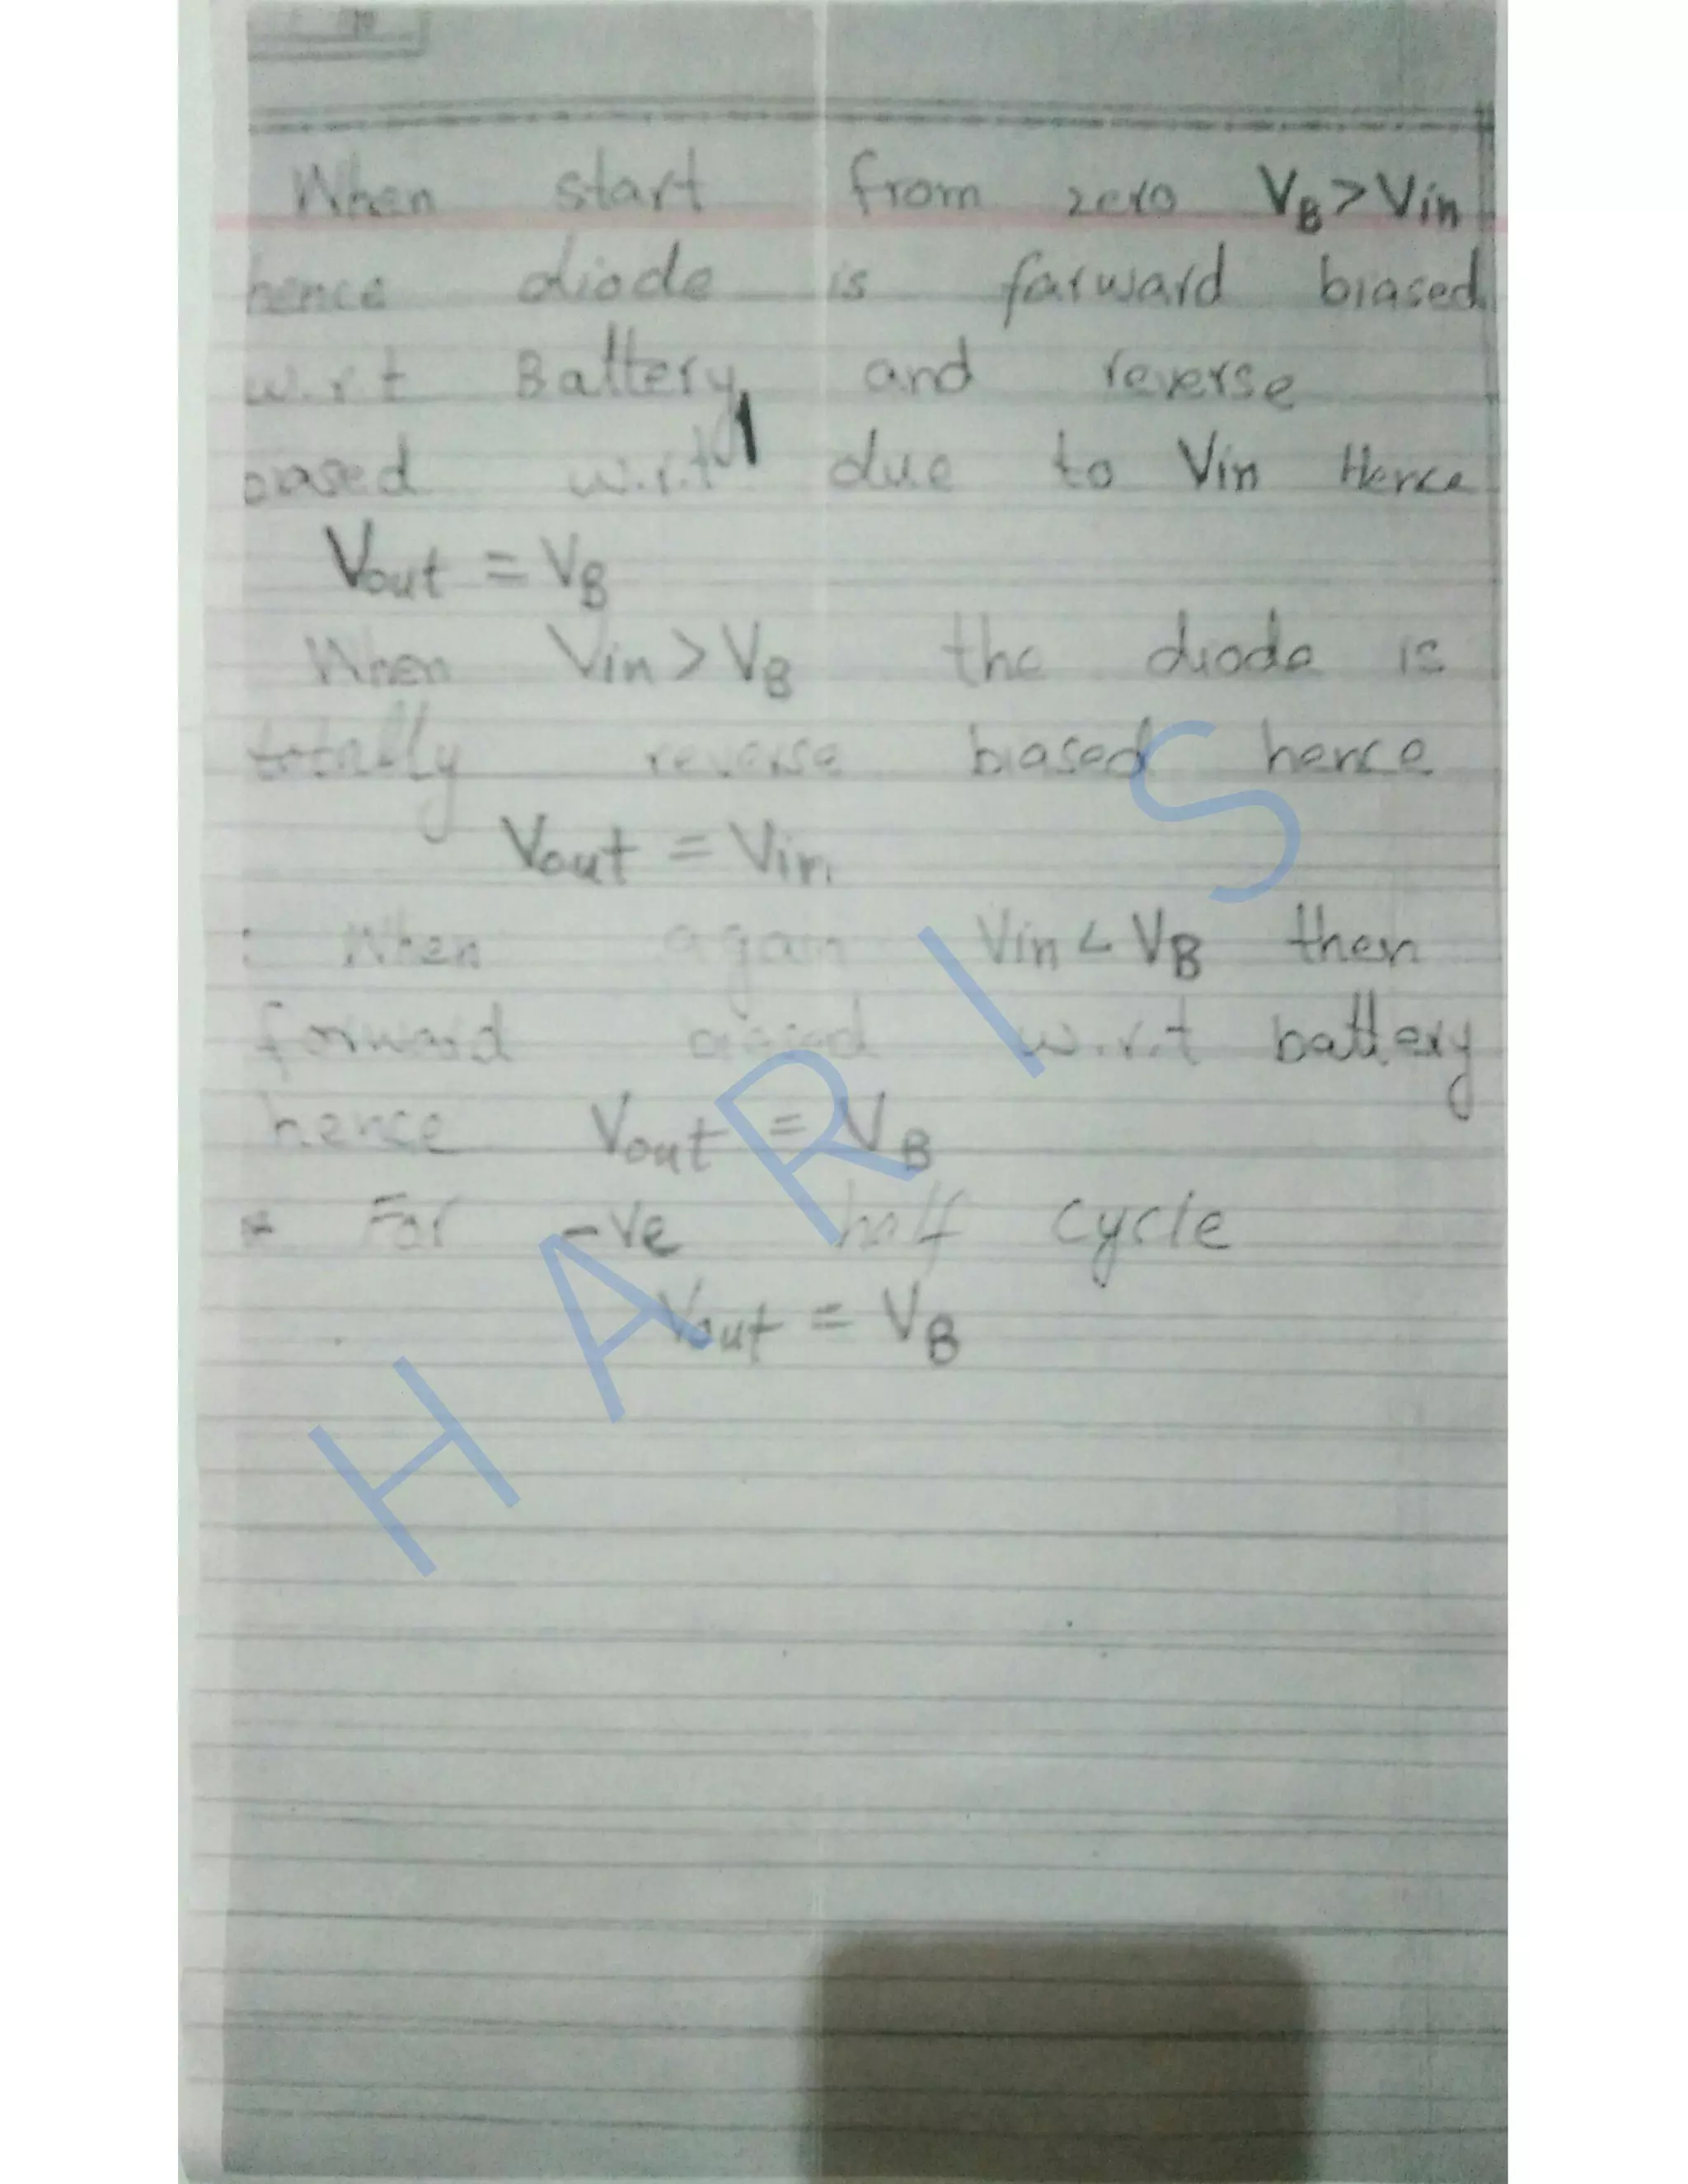 When start from zero VB > Vin
hence diode is farward biased
w.r.t Battery and reverse
biased w.r.t due to Vin Hence
Vout = VB
When Vin > VB the diode is
totally reverse biased hence
Vout = Vin
: When again Vin < VB then
forward biased w.r.t battery
hence Vout = VB
= For -ve half cycle
Vout = VB
HARIS